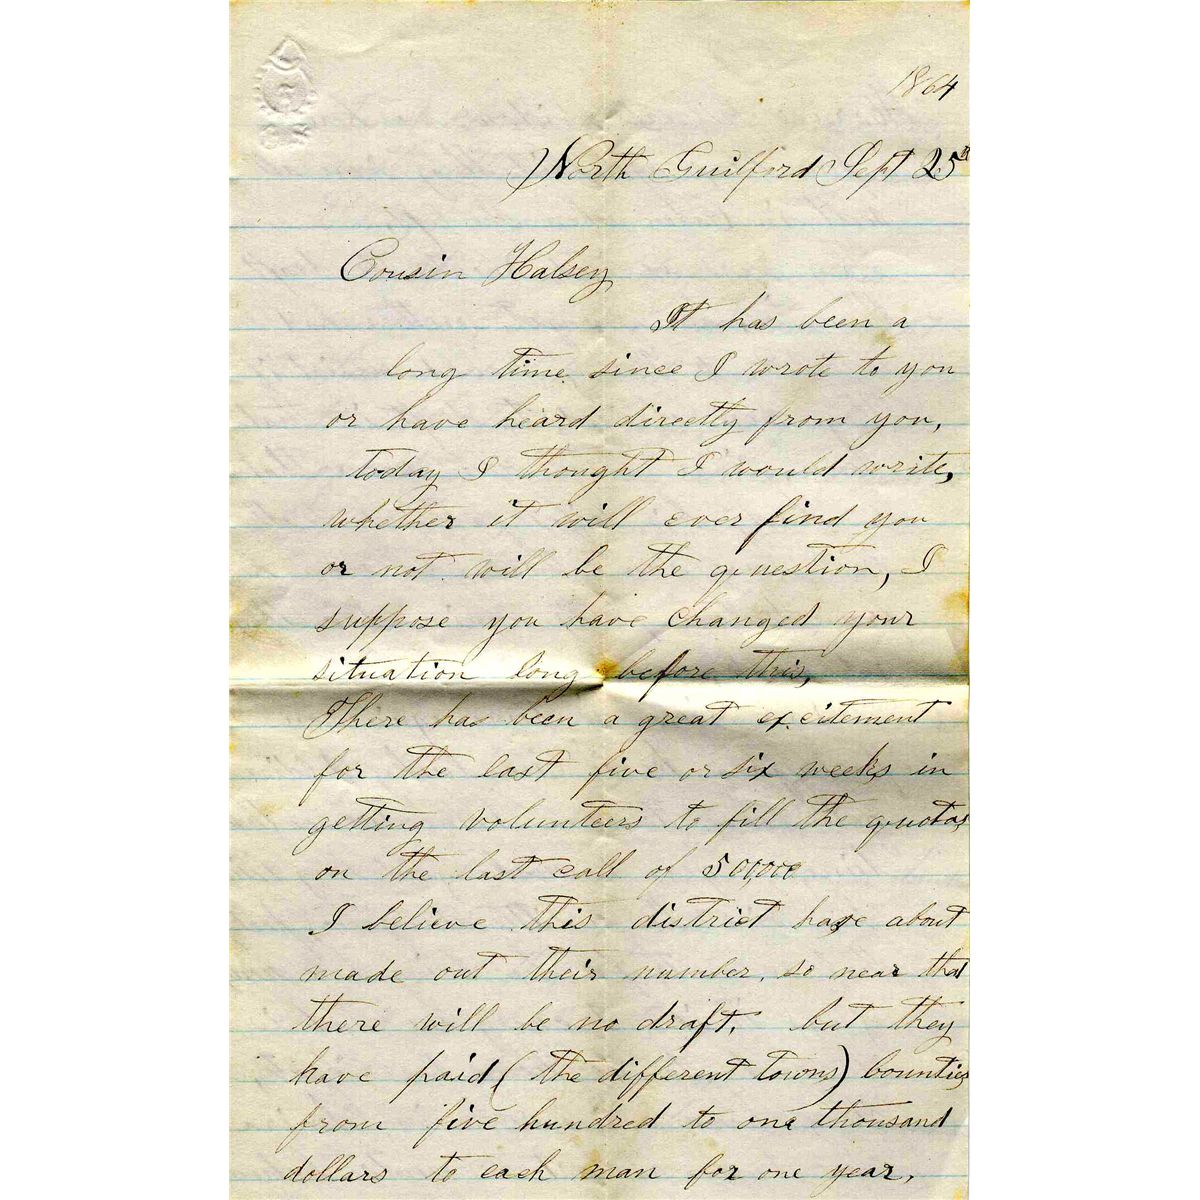 1864
North Guilford Sept 25th
Cousin Halsey
It has been a
long time since I wrote to you
or have heard directly from you,
today I thought I would write,
whether it will ever find you
or not will be the question, I
suppose you have changed your
situation long before this,
There has been a great excitement
for the last five or six weeks in
getting volunteers to fill the quotas
on the last call of 500,000
I believe this district have about
made out their number, so near that
there will be no draft. but they
have paid (the different towns) bounties
from five hundred to one thousand
dollars to each man for one year,